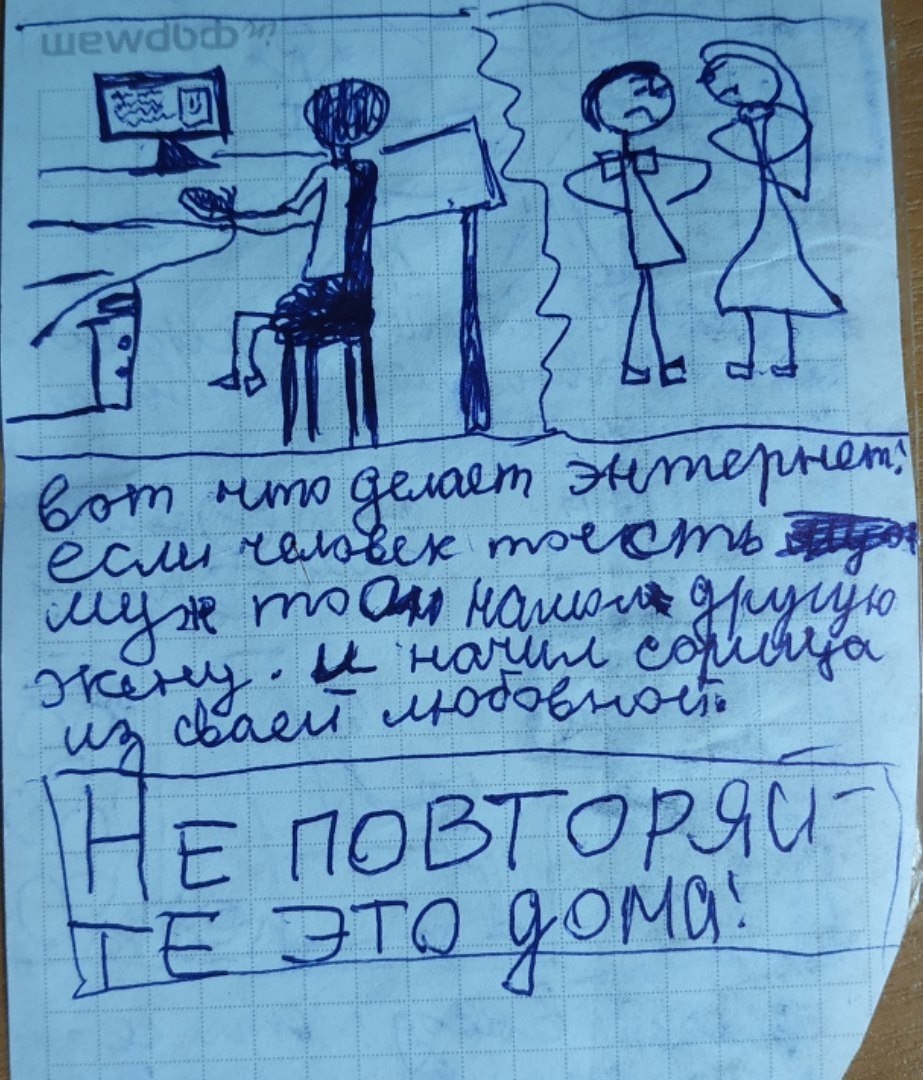 информаш
вот что делает энтернет!
если человек тоесть
муж то он нашол другую
жену. и начил сорица
из сваей любовной.
НЕ ПОВТОРЯЙ-
ТЕ ЭТО ДОМА!